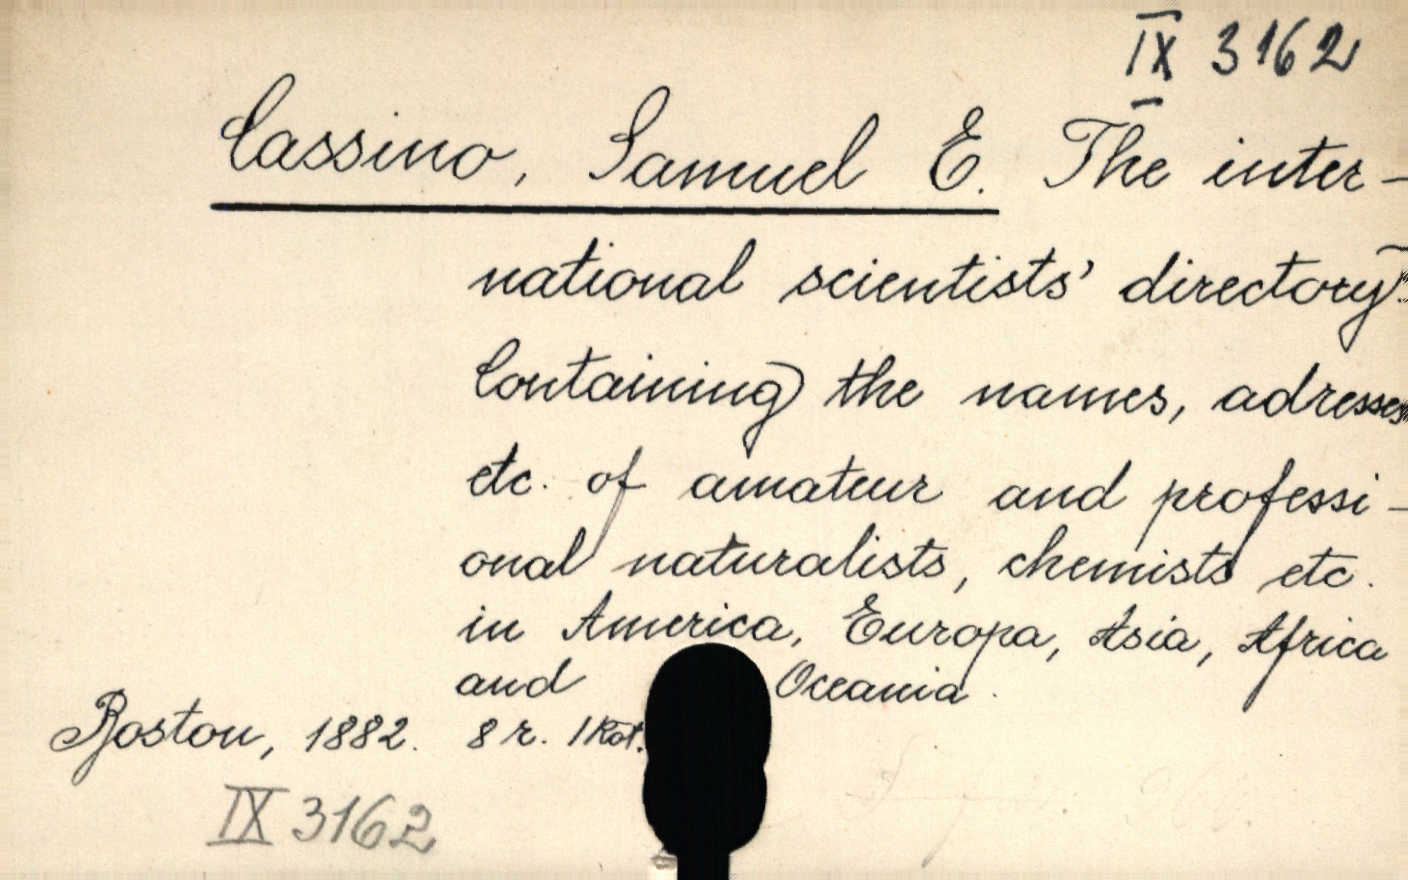 IX 3162
Cassino, Samuel E. The inter-
national scientists' directory
Containing the names, adresses
etc. of amateur and professi-
onal naturalists, chemists etc.
in America, Europa, Asia, Africa
and Oceania.
Boston, 1882. 8 r. 1 Köt.
IX 3162